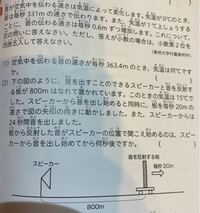 空気中を伝わる速さは気温によって変化します。気温が0℃のとき、
毎秒331mの速さで伝わります。また、気温が1℃上昇する
音の伝わる速さは毎秒0.6mずつ増加します。これについて、
次の問いに答えなさい。ただし、答えが小数の場合は、小数第2位を
四捨五入して答えなさい。
(1) 空気中を伝わる音の速さが毎秒363.4mのとき、気温は何℃です
か。
(2) 下の図のように、音を出すことのできるスピーカーと音を反射す
る板が800mはなれて置かれています。このときの気温は15℃で
した。スピーカーから音を出し始めると同時に、板を毎秒20mの
速さで図の矢印の向きに動かしました。また、スピーカーからは
24秒間音を出しました。
板から反射した音がスピーカーの位置で聞こえ始めるのは、スピー
カーから音を出し始めてから何秒後ですか。
スピーカー
音を反射する板
毎秒20m
800m